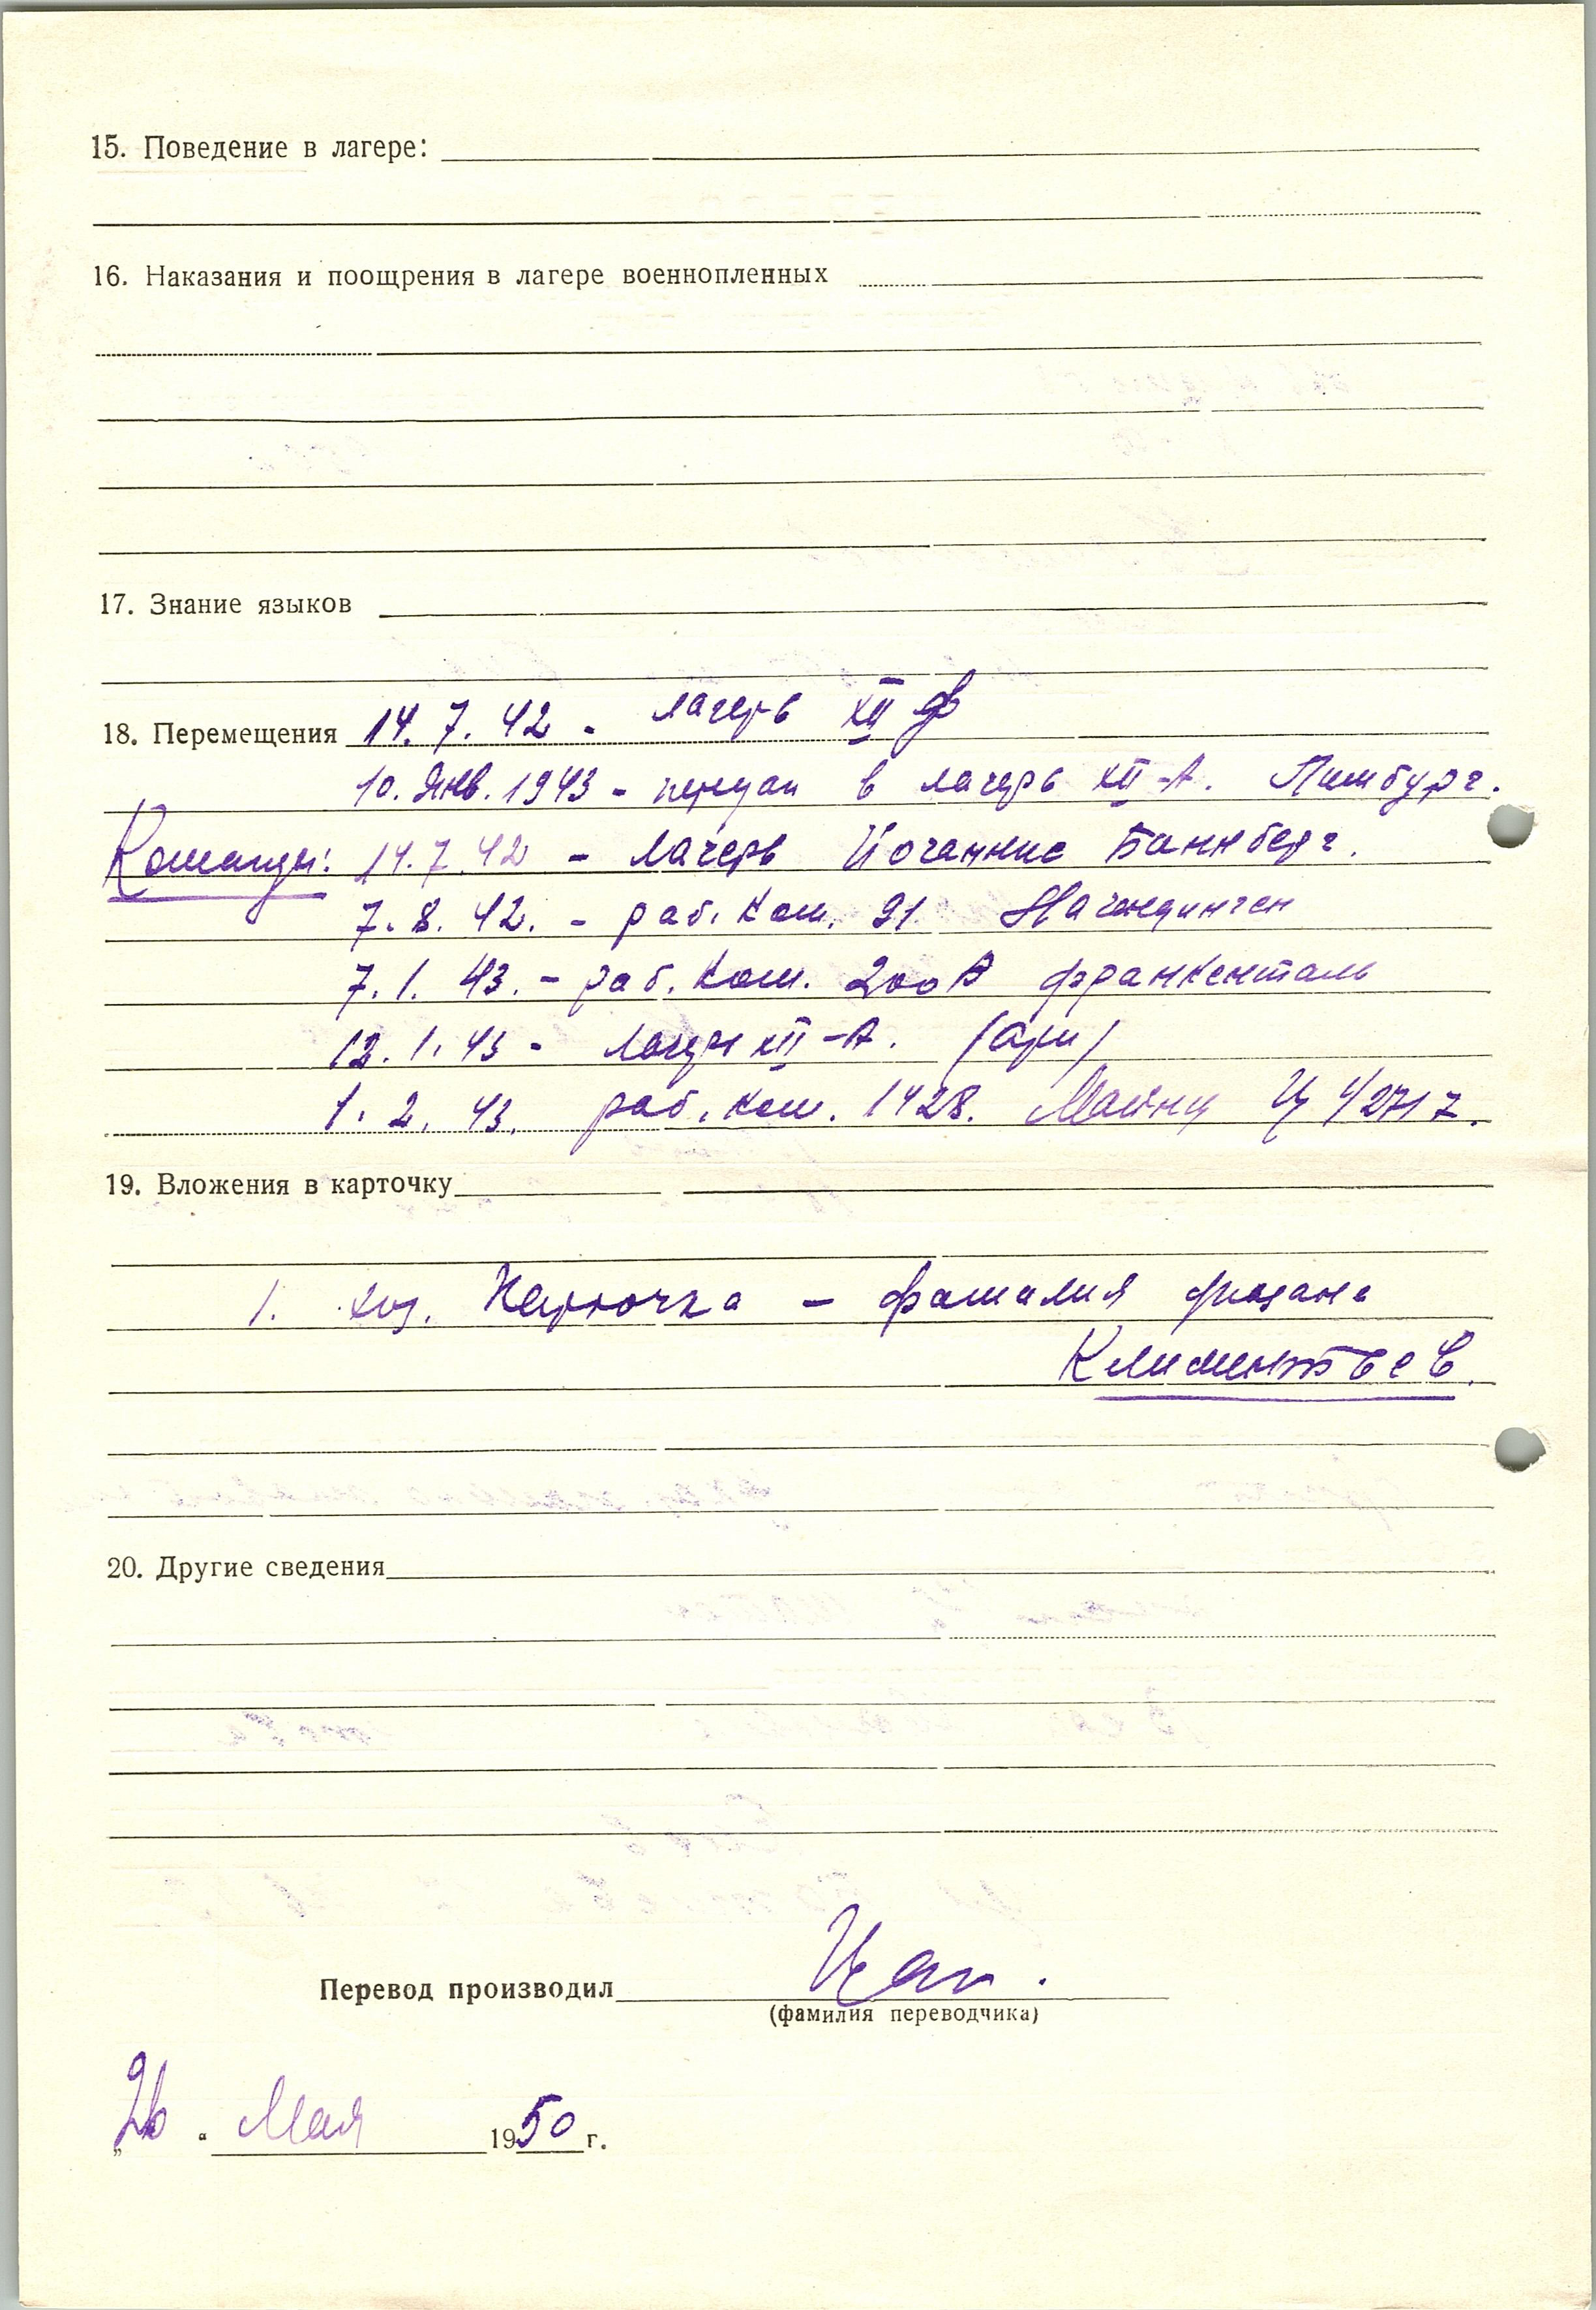 15. Поведение в лагере:
16. Наказания и поощрения в лагере военнопленных
17. Знание языков
18. Перемещения 14. 7. 42 - лагерь XII Ф
10. Янв. 1943 - передан в лагерь XII-А. Лимбург.
Команды: 14. 7. 42 - лагерь Йоганнис Баннберг.
7. 8. 42. - раб. ком. 91
7. 1. 43. - раб. ком. 200 Франкенталь
12. 1. 43 - лагерь XII-А.
1. 2. 43. раб. ком. 1428. Майнц
19. Вложения в карточку
1. карточка - фамилия указана
Климентьев.
20. Другие сведения
Перевод производил
(фамилия переводчика)
„26“ Мая 1950 г.